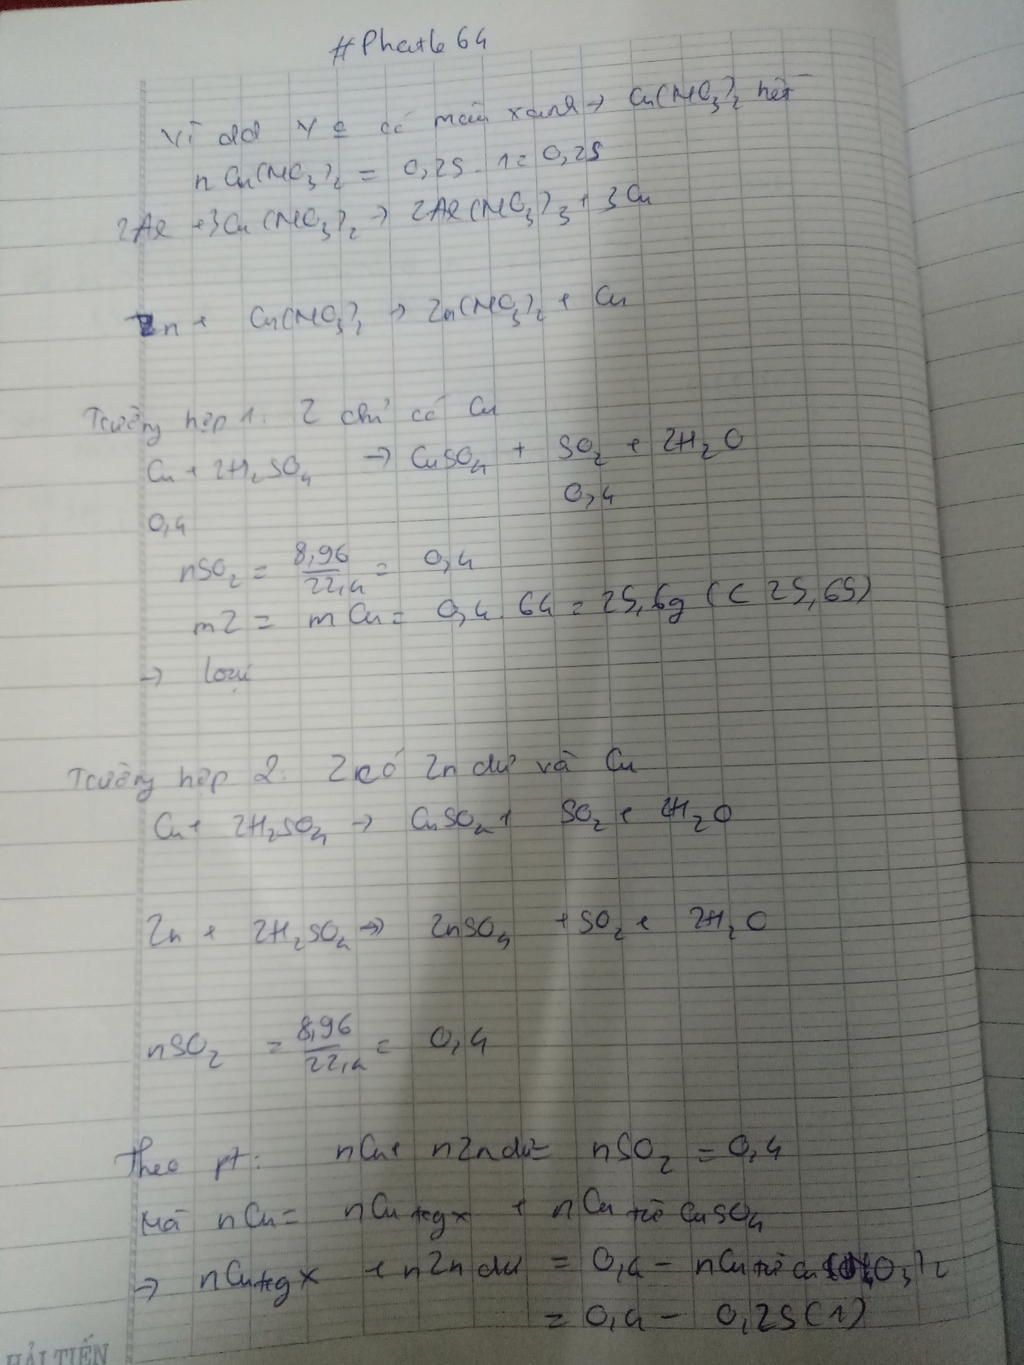 #Phatle 64
Vì dd Y ko có màu xanh → Cu(NO3)2 hết
nCu(NO3)2 = 0,25 . 1 = 0,25
2Al + 3Cu(NO3)2 → 2Al(NO3)3 + 3Cu
Zn + Cu(NO3)2 → Zn(NO3)2 + Cu
Trường hợp 1: Z chỉ có Cu
Cu + 2H2SO4 → CuSO4 + SO2 + 2H2O
0,4 0,4
nSO2 = 8,96/22,4 = 0,4
mZ = mCu = 0,4 . 64 = 25,6g (< 25,65)
→ loại
Trường hợp 2: Z có Zn dư và Cu
Cu + 2H2SO4 → CuSO4 + SO2 + 2H2O
Zn + 2H2SO4 → ZnSO4 + SO2 + 2H2O
nSO2 = 8,96/22,4 = 0,4
Theo pt: nCu + nZn dư = nSO2 = 0,4
Mà nCu = nCu trg X + nCu từ CuSO4
→ nCu trg X + nZn dư = 0,4 - nCu từ Cu(NO3)2
= 0,4 - 0,25 (1)
HẢI TIẾN